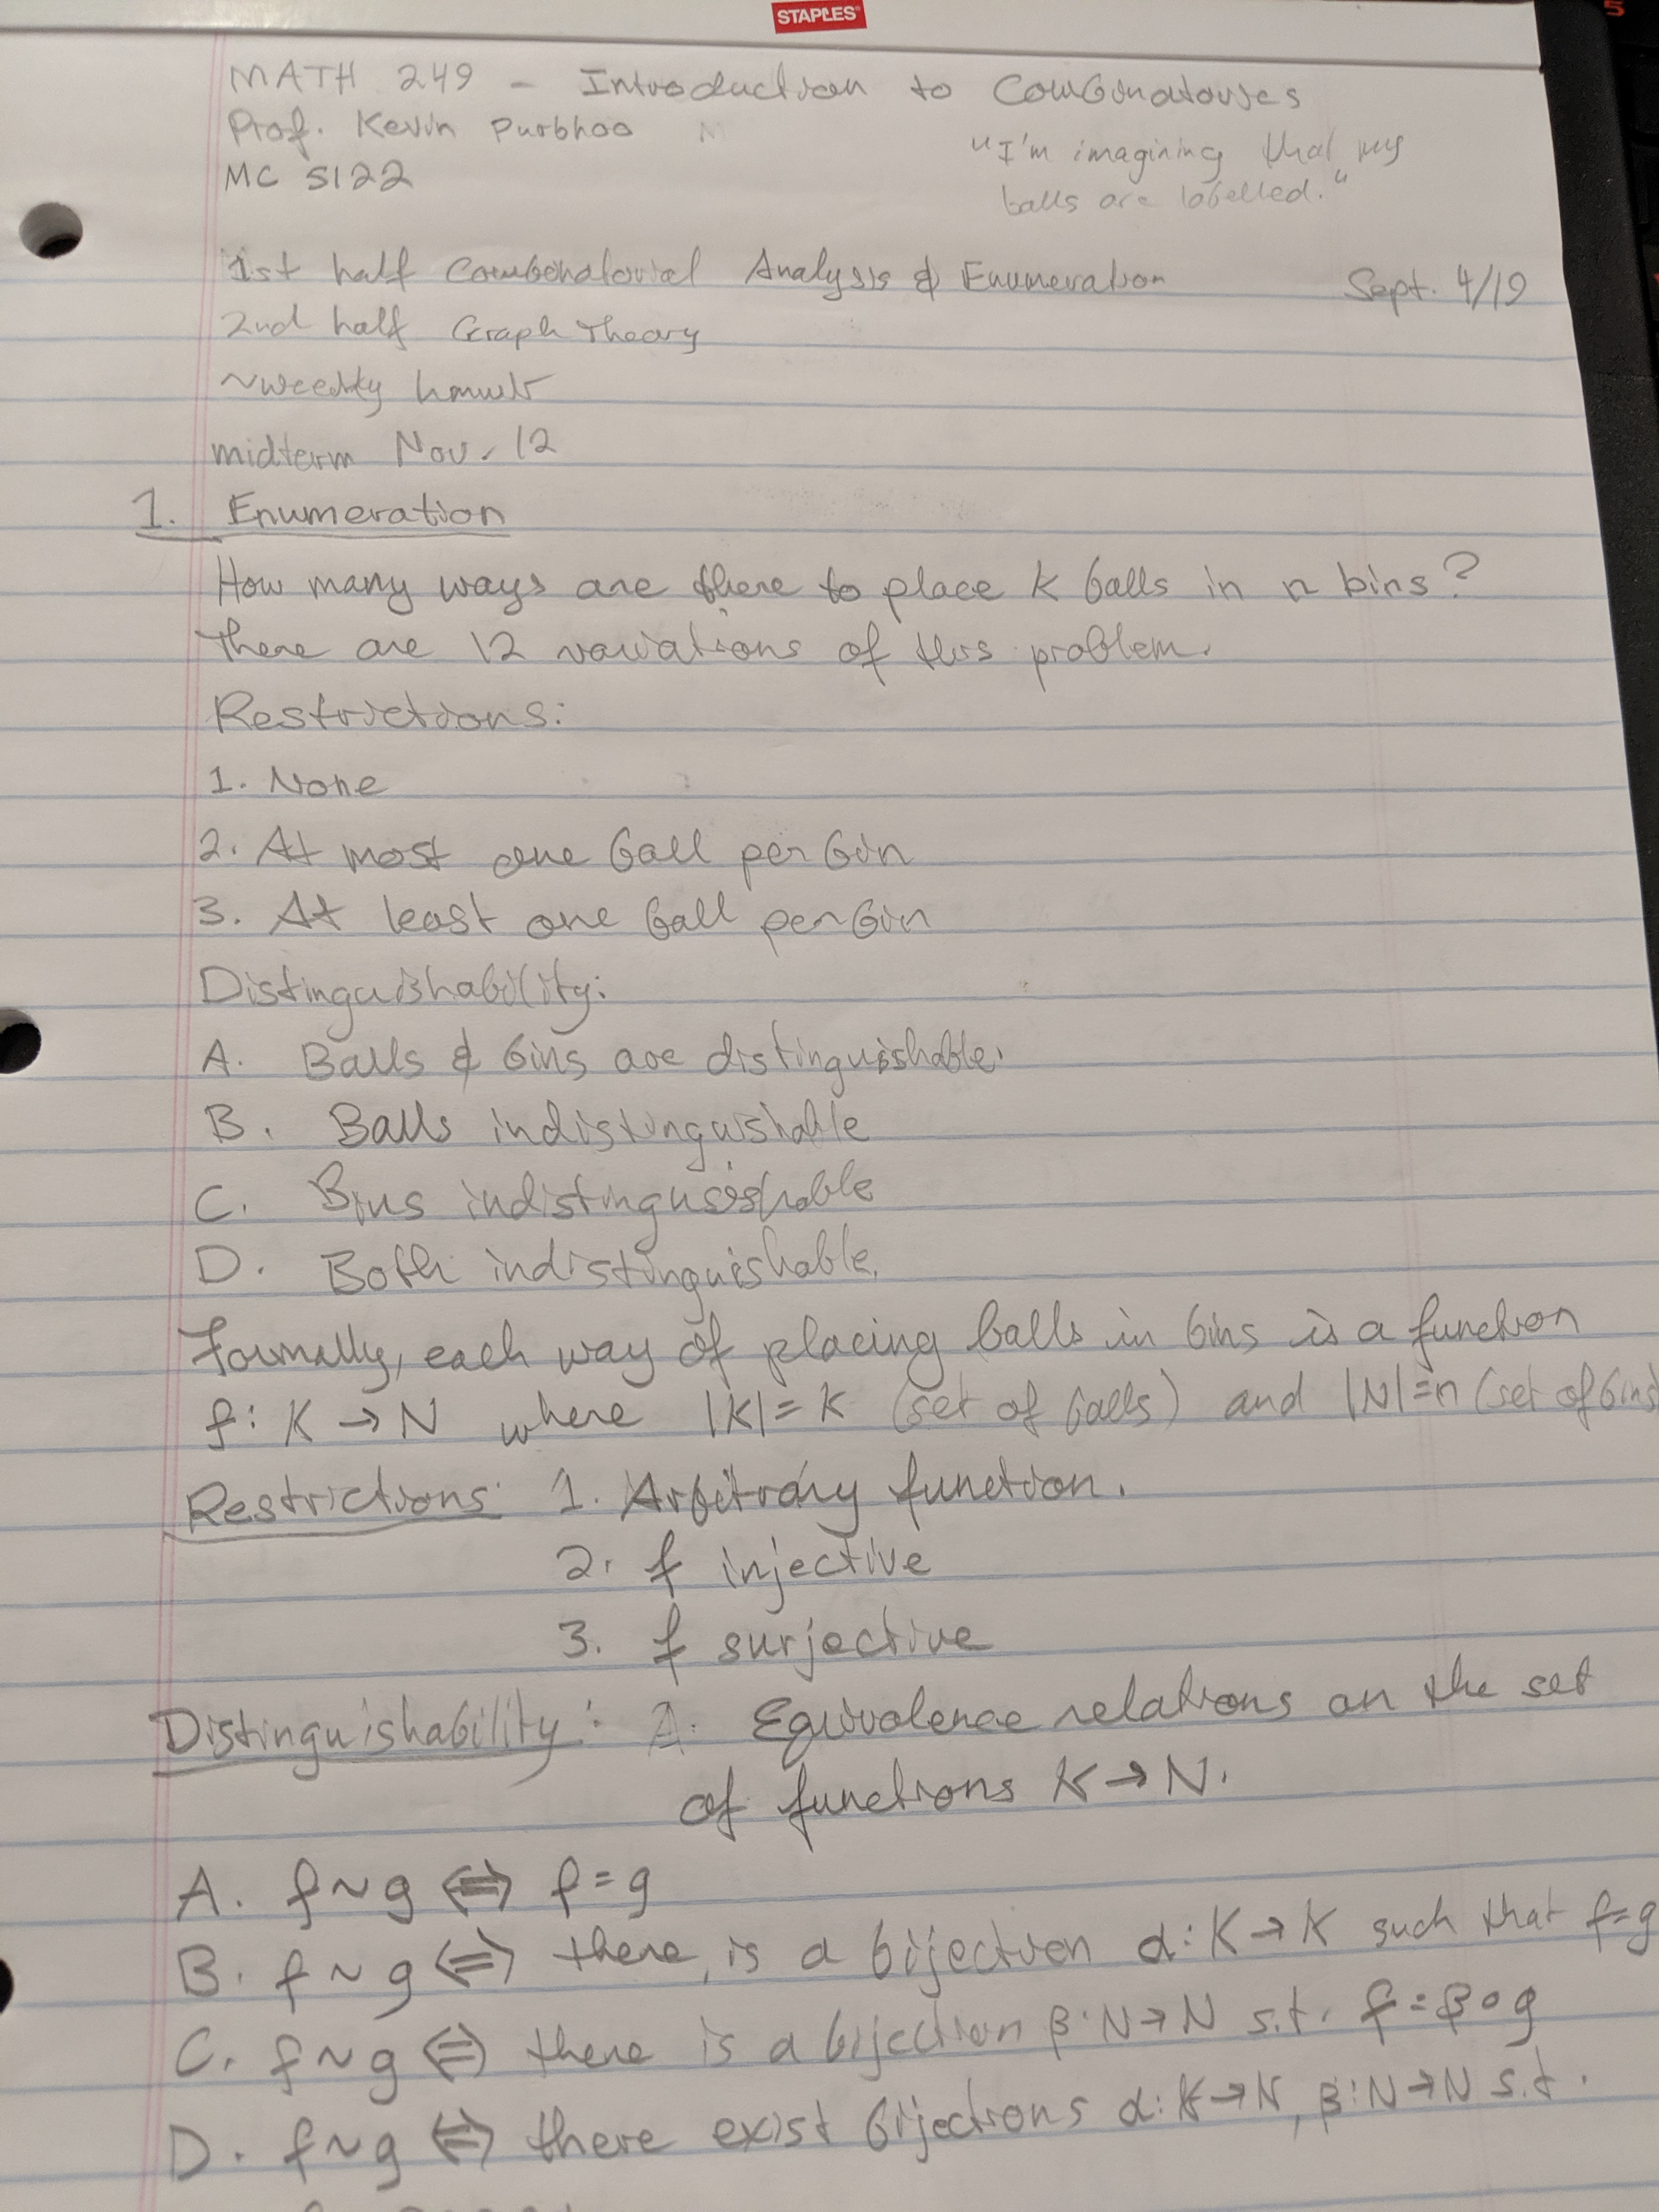 STAPLES
MATH 249 - Introduction to Combinatorics
Prof. Kevin Purbhoo
"I'm imagining that my
MC 5122
balls are labelled."
1st half Combinatorial Analysis & Enumeration
Sept. 4/19
2nd half Graph Theory
~weekly hmwk
midterm Nov. 12
1. Enumeration
How many ways are there to place k balls in n bins?
There are 12 variations of this problem.
Restrictions:
1. None
2. At most one ball per bin
3. At least one ball per bin
Distinguishability:
A. Balls & bins are distinguishable.
B. Balls indistinguishable
C. Bins indistinguishable
D. Both indistinguishable.
Formally, each way of placing balls in bins is a function
f: K → N where |K| = k (set of balls) and |N| = n (set of bins)
Restrictions: 1. Arbitrary function.
2. f injective
3. f surjective
Distinguishability: Equivalence relations on the set
of functions K → N.
A. f ~ g ⟺ f = g
B. f ~ g ⟺ there is a bijection α: K → K such that f = g
C. f ~ g ⟺ there is a bijection β: N → N s.t. f = β ∘ g
D. f ~ g ⟺ there exist bijections α: K → N, β: N → N s.t.